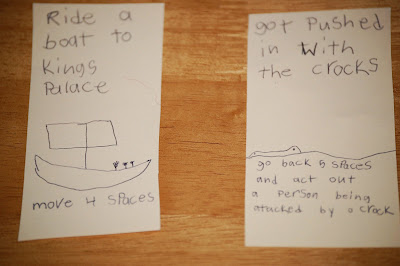 Ride a
boat to
Kings
Palace
move 4 spaces
got Pushed
in with
the crocks
go back 5 spaces
and act out
a person being
attacked by a crock